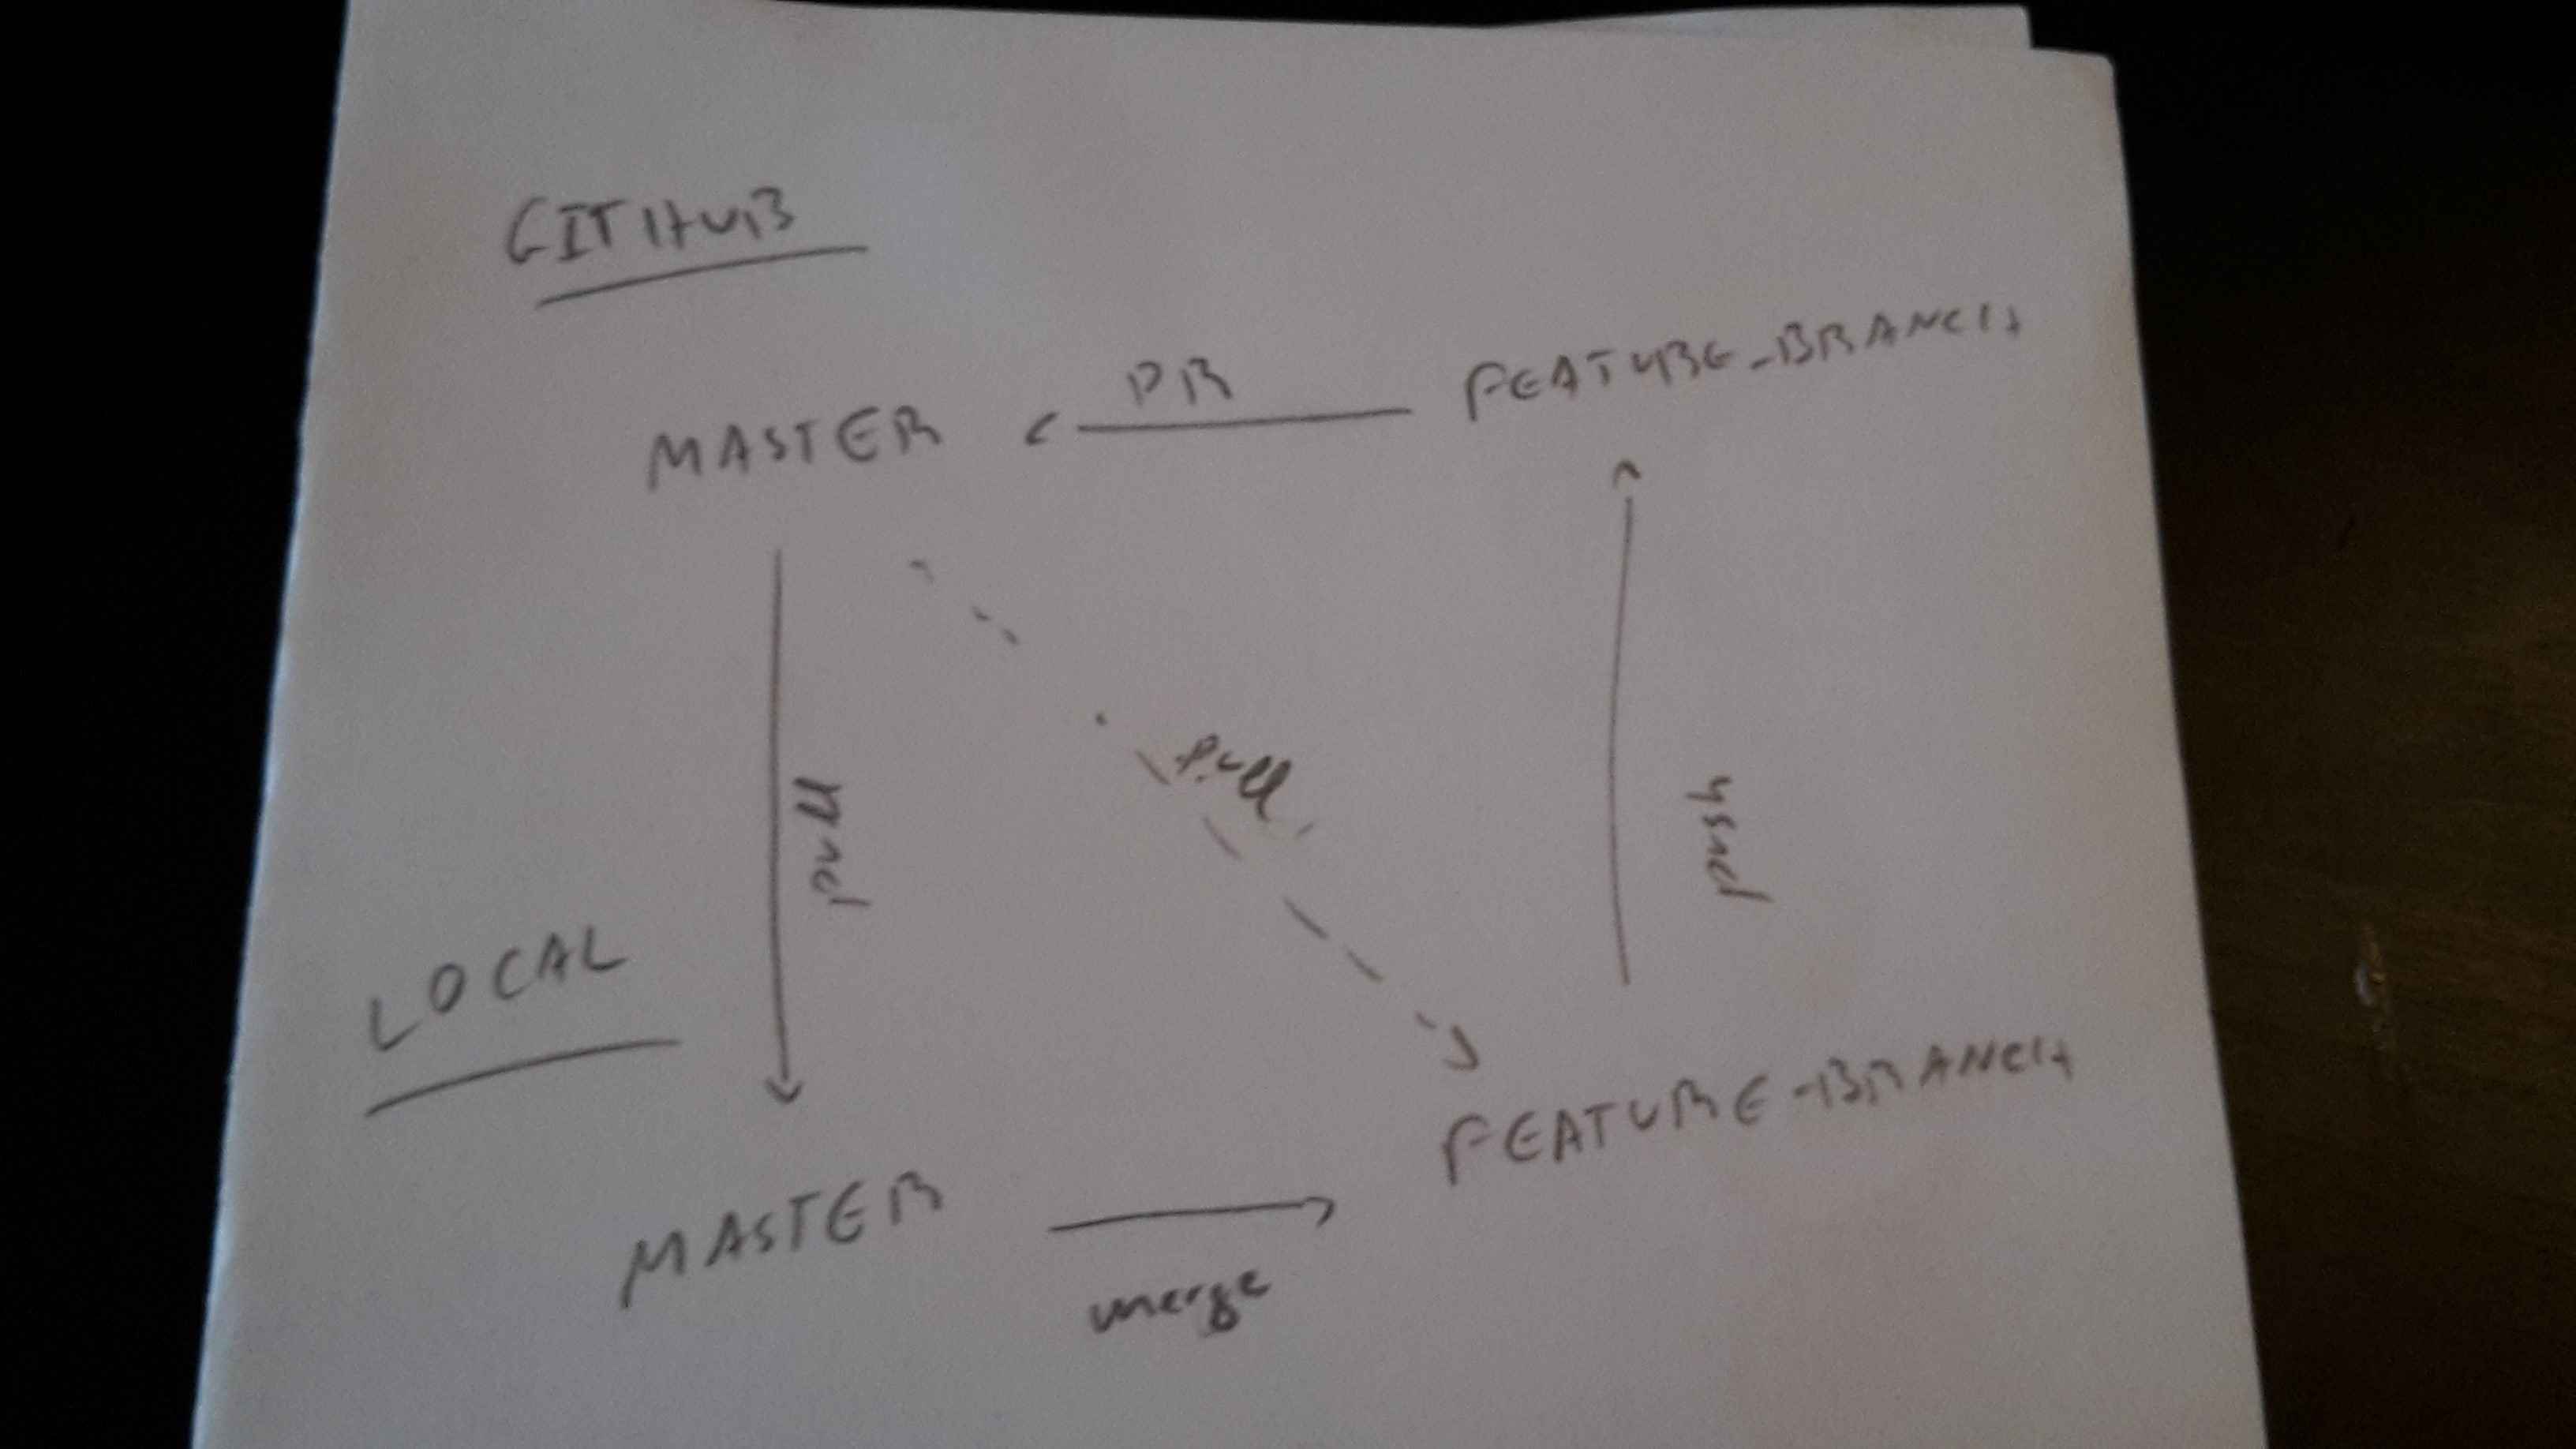 GITHUB
MASTER PR FEATURE-BRANCH
pull
push
LOCAL
MASTER merge FEATURE-BRANCH